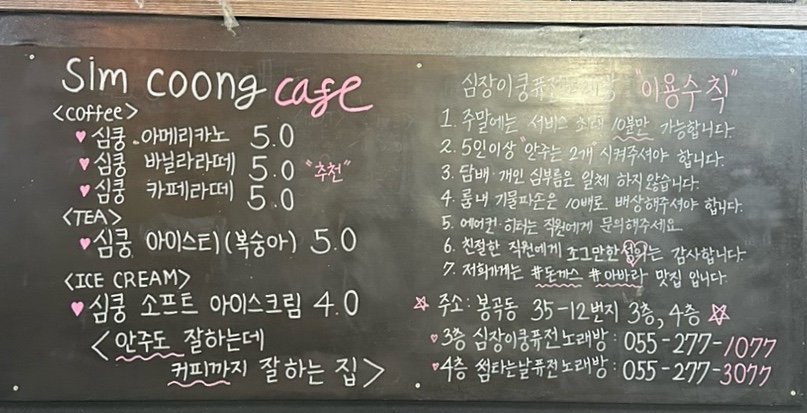 Sim coong cafe
<coffee>
♥심쿵 아메리카노 5.0
♥심쿵 바닐라라떼 5.0 "추천"
♥심쿵 카페라떼 5.0
<TEA>
♥심쿵 아이스티(복숭아) 5.0
<ICE CREAM>
♥심쿵 소프트 아이스크림 4.0
<안주도 잘하는데
커피까지 잘하는 집>
심장이쿵퓨전노래방 "이용수칙"
1. 주말에는 서비스 초대 10분만 가능합니다.
2. 5인이상 "안주는 2개" 시켜주셔야 합니다.
3. 담배·개인 심부름은 일체 하지않습니다.
4. 룸내 기물파손은 10배로 배상해주셔야 합니다.
5. 에어컨·히터는 직원에게 문의해주세요
6. 친절한 직원에게 조그만한 팁는 감사합니다.
7. 저희가게는 #돈까스 #아바라 맛집 입니다.
☆ 주소: 봉곡동 35-12번지 3층, 4층 ☆
♥3층 심장이쿵퓨전노래방: 055-277-1077
♥4층 썸타는날퓨전노래방: 055-277-3077